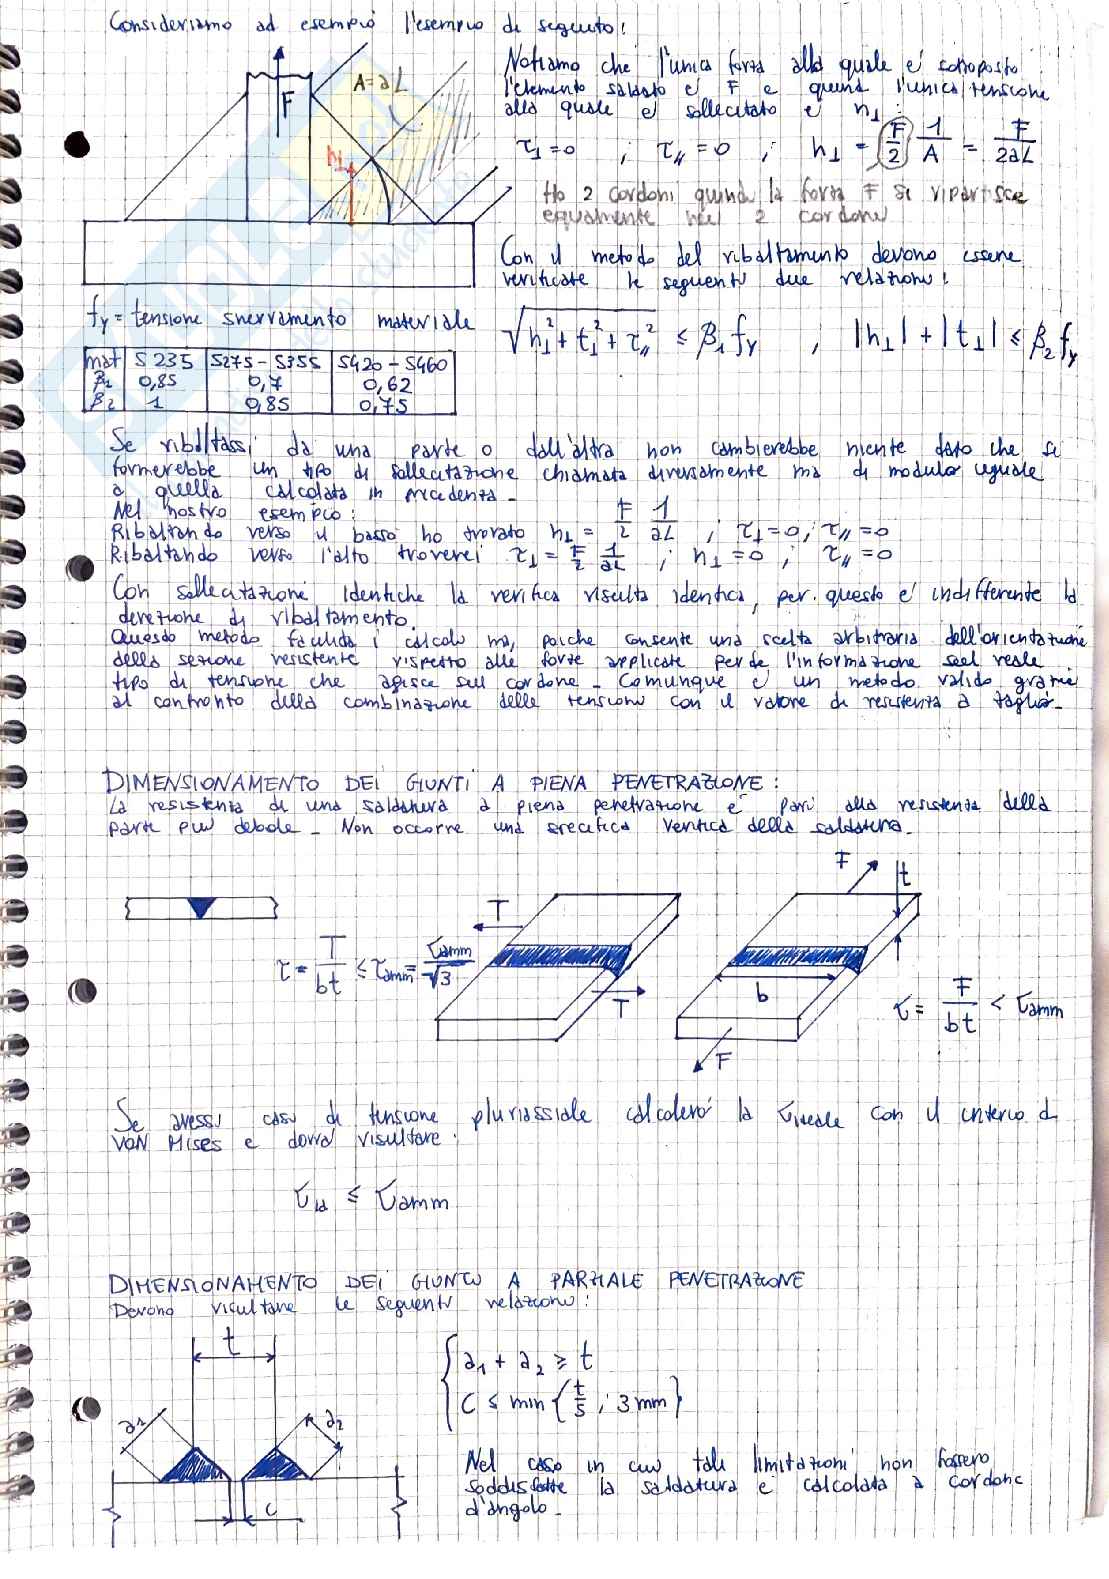 Consideriamo ad esempio l'esempio di seguito:
Notiamo che l'unica forza alla quale è sottoposto
l'elemento saldato è F e quindi l'unica tensione
alla quale è sollecitato è n⊥:
F
A=aL
n⊥
τ⊥=0 ; τ∥=0 ; n⊥ = F/2 1/A = F/2aL
Ho 2 cordoni quindi la forza F si ripartisce
equamente nei 2 cordoni
Con il metodo del ribaltamento devono essere
verificate le seguenti due relazioni:
fy = tensione snervamento materiale
√(n⊥² + t⊥² + τ∥²) ≤ β1 fy , |n⊥| + |t⊥| ≤ β2 fy
mat S235 S275-S355 S420-S460
β1 0,85 0,7 0,62
β2 1 0,85 0,75
Se ribaltassi da una parte o dall'altra non cambierebbe niente dato che si
formerebbe un tipo di sollecitazione chiamata diversamente ma di modulo uguale
a quella calcolata in precedenza.
Nel nostro esempio:
Ribaltando verso il basso ho trovato n⊥ = F/2 1/aL ; τ⊥=0 ; τ∥=0
Ribaltando verso l'alto troverei τ⊥ = F/2 1/aL ; n⊥=0 ; τ∥=0
Con sollecitazioni identiche la verifica risulta identica, per questo è indifferente la
direzione di ribaltamento.
Questo metodo facilita i calcoli ma, poiché consente una scelta arbitraria dell'orientazione
della sezione resistente rispetto alle forze applicate perde l'informazione sul reale
tipo di tensione che agisce sul cordone. Comunque è un metodo valido grazie
al confronto della combinazione delle tensioni con il valore di resistenza a taglio.
DIMENSIONAMENTO DEI GIUNTI A PIENA PENETRAZIONE:
La resistenza di una saldatura a piena penetrazione è pari alla resistenza della
parte più debole. Non occorre una specifica verifica della saldatura.
τ = T/bt ≤ τamm = σamm/√3
T
T
F
t
b
F
σ = F/bt < σamm
Se avessi caso di tensione pluriassiale calcolerò la σideale con il criterio di
VON Mises e dovrà risultare:
σid ≤ σamm
DIMENSIONAMENTO DEI GIUNTI A PARZIALE PENETRAZIONE
Devono risultare le seguenti relazioni:
t
a1
a2
c
{ a1 + a2 ≥ t
{ C ≤ min {t/5 ; 3mm}
Nel caso in cui tali limitazioni non fossero
soddisfatte la saldatura è calcolata a cordone
d'angolo.